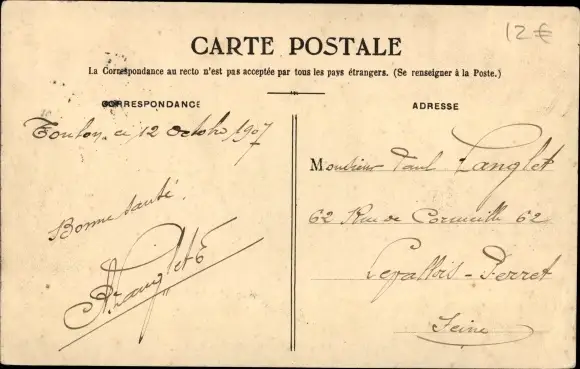 12 €
CARTE POSTALE
La Correspondance au recto n'est pas acceptée par tous les pays étrangers. (Se renseigner à la Poste.)
CORRESPONDANCE
Toulon ce 12 Octobre 1907
Bonne santé.
A. Langlet
ADRESSE
Monsieur Paul Langlet
62 Rue de Corneille 62
Levallois-Perret
Seine